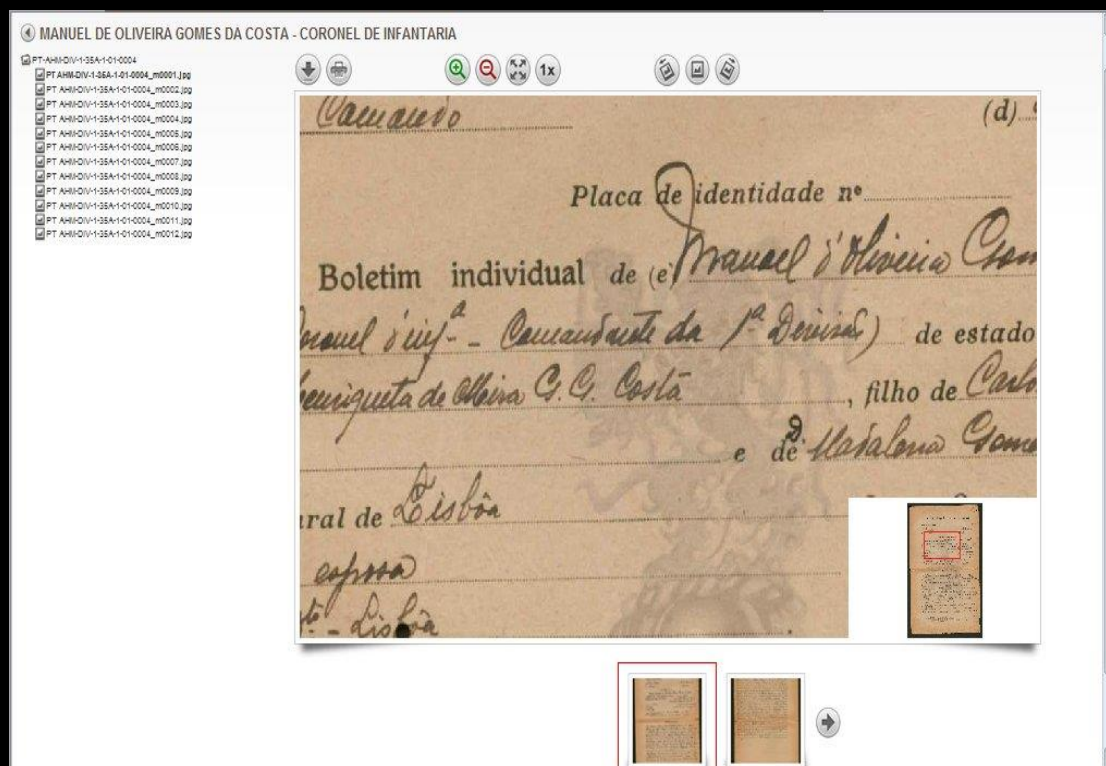 MANUEL DE OLIVEIRA GOMES DA COSTA - CORONEL DE INFANTARIA
PT-AHM-DIV-1-35A-1-01-0004
PT AHM-DIV-1-35A-1-01-0004_m0001.jpg
PT AHM-DIV-1-35A-1-01-0004_m0002.jpg
PT AHM-DIV-1-35A-1-01-0004_m0003.jpg
PT AHM-DIV-1-35A-1-01-0004_m0004.jpg
PT AHM-DIV-1-35A-1-01-0004_m0005.jpg
PT AHM-DIV-1-35A-1-01-0004_m0006.jpg
PT AHM-DIV-1-35A-1-01-0004_m0007.jpg
PT AHM-DIV-1-35A-1-01-0004_m0008.jpg
PT AHM-DIV-1-35A-1-01-0004_m0009.jpg
PT AHM-DIV-1-35A-1-01-0004_m0010.jpg
PT AHM-DIV-1-35A-1-01-0004_m0011.jpg
PT AHM-DIV-1-35A-1-01-0004_m0012.jpg
1x
Comando (d)
Placa de identidade nº
Boletim individual de (e) Manuel d'Oliveira Gom
oronel d'infª - Comandante da 1ª Divisão) de estado
enriqueta de Mira G. G. Costa, filho de Carlo
e de Madalena Gome
ural de Lisbôa
esposa
Lisbôa